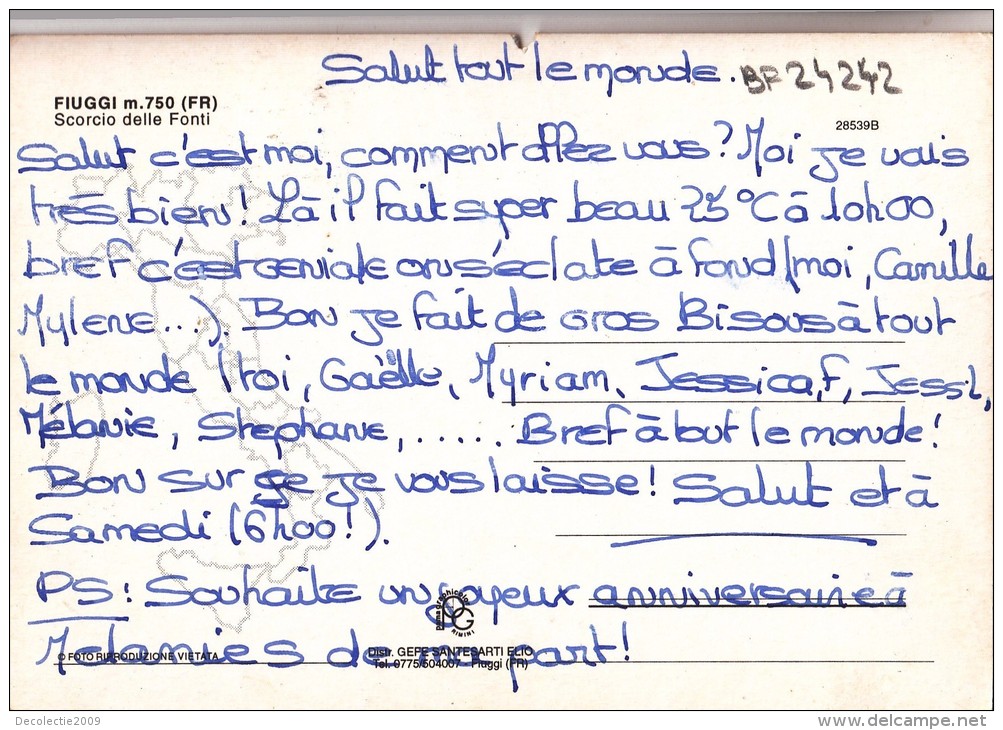 Salut tout le monde. BF 24242
FIUGGI m.750 (FR)
Scorcio delle Fonti
28539B
Salut c'est moi, comment allez vous? Moi je vais
très bien! Là il fait super beau 25°C à 10h00,
bref c'est geniale on s'eclate à fond (moi, Camille
Mylene...). Bon je fait de gros Bisous à tout
le monde (toi, Gaëlle, Myriam, Jessica,F, Jess.L,
Mélanie, Stephane, ..... Bref à tout le monde!
Bon sur ce je vous laisse! Salut et à
Samedi (6h00!).
PS: Souhaite un joyeux anniversaire à
Melanies de ma part!
PG
RIMINI
© FOTO RIPRODUZIONE VIETATA
Distr. GEFE SANTESARTI ELIO
Tel. 0775/504007 - Fiuggi (FR)
Decolectie2009
www.delcampe.net